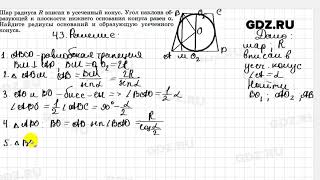 Шар радиуса R вписан в усеченный конус. Угол наклона об-
разующей к плоскости нижнего основания конуса равен α.
Найдите радиусы оснований и образующую усеченного
конуса.
GDZ.RU
43. Решение
Дано:
шар, R
вписан в
усеч. конус
∠A = α
Найти
BO₁, AO₂, AB
B
O₁
C
A
M
1. ABCD - равнобокая трапеция
BM ⊥ AD, BM = O₁O₂ = 2R
2. △ABM: AB = BM / sin α = 2R / sin α
3. AO и BO - бисс-сы => ∠BAO = 1/2 α
∠ABO = 1/2 ∠ABC = 90° - α/2
4. △ABO: BO = AB · sin∠BAO = R / cos α/2
5. △B
GDZ.RU